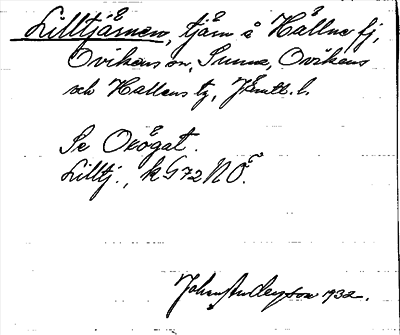 Lilltjärnen, tjärn å Hållne fj,
Ovikens sn, Sunne, Ovikens
och Hallens tg, Jämtl. l.
Se Oxögat.
Lilltj., k G72 NÖ.
Johan Andersson 1932.